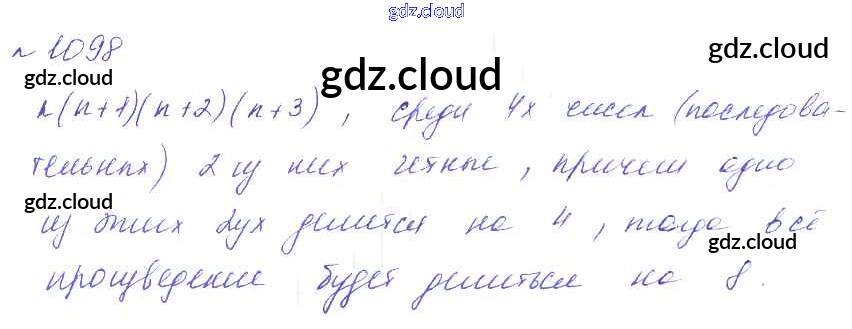 gdz.cloud
№ 1098
gdz.cloud gdz.cloud gdz.cloud
n(n+1)(n+2)(n+3), среди 4х чисел (последова-
тельных) 2 из них четные, причем одно
gdz.cloud
из этих 2ух делится на 4, тогда всё
gdz.cloud
произведение будет делиться на 8.
gdz.cloud gdz.cloud